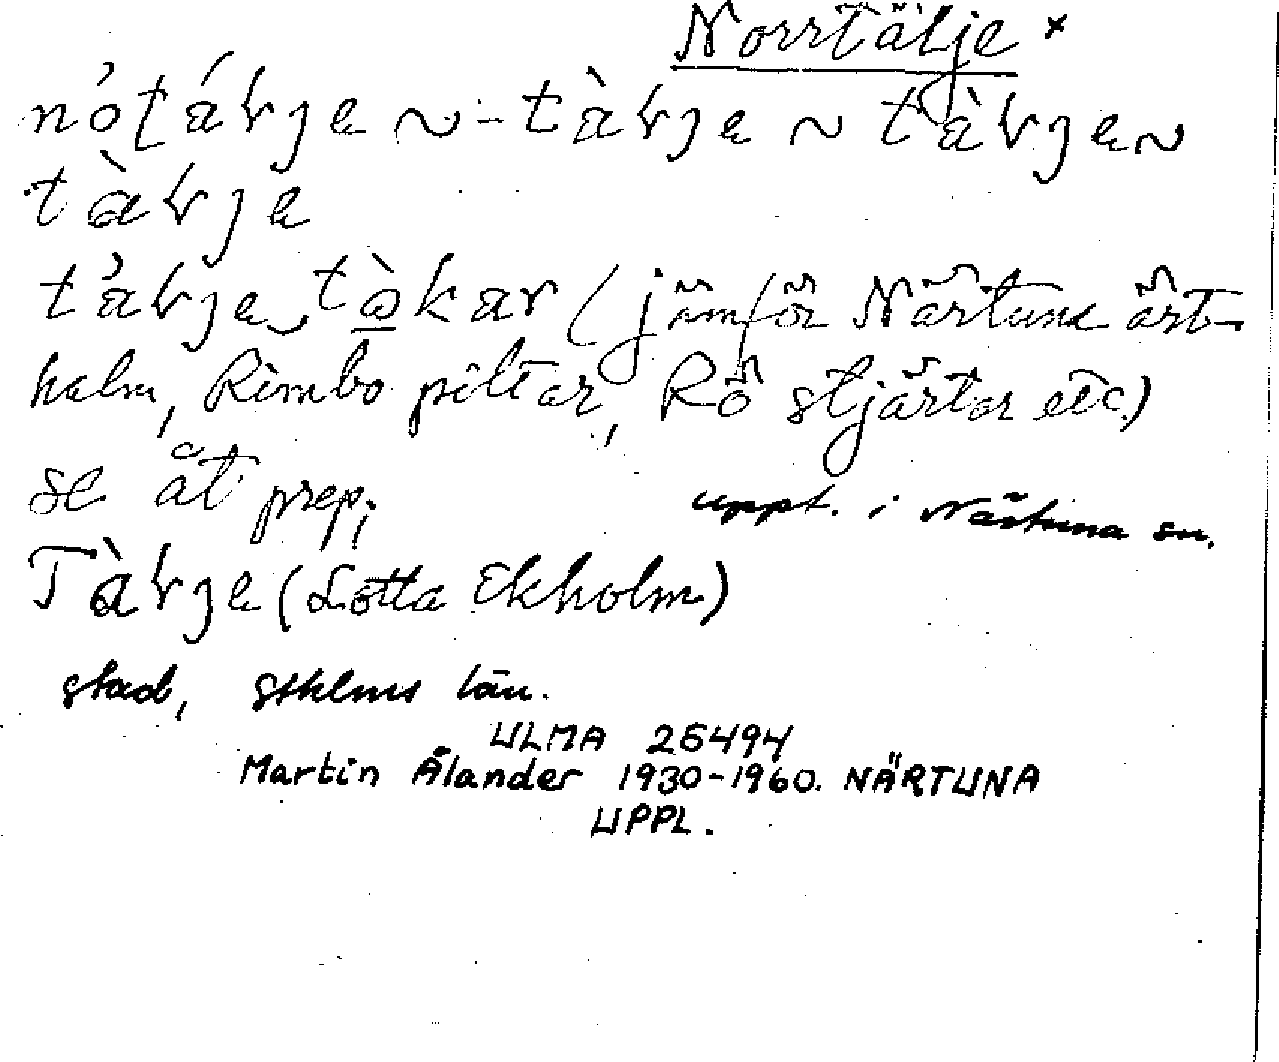 Norrtälje ×
nòtávje ~ -tàvje ~ tàvjen ~
tàvje
távje tòkar (jämför Närtuna ärt-
halm, Rimbo piltar, Rö stjärtar etc.)
se åt prep;
uppt. i Närtuna sn.
Tàvje (Lotta Ekholm)
stad, Sthlms län.
ULMA 26494
Martin Ålander 1930-1960. NÄRTUNA
UPPL.